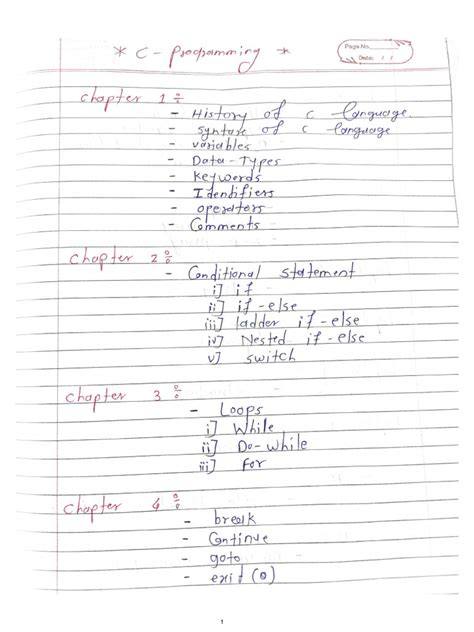 * C - Programming *
Page No.
Date: / /
Chapter 1 ÷
- History of C language.
- Syntax of C language
- variables
- Data-Types
- Keywords
- Identifiers
- operators
- Comments
Chapter 2 ÷
- Conditional Statement
i] if
ii] if-else
iii] ladder if-else
iv] Nested if-else
v] switch
Chapter 3 ÷
- Loops
i] While
ii] Do-while
iii] for
Chapter 4 ÷
- break
- Continue
- goto
- exit (0)
1